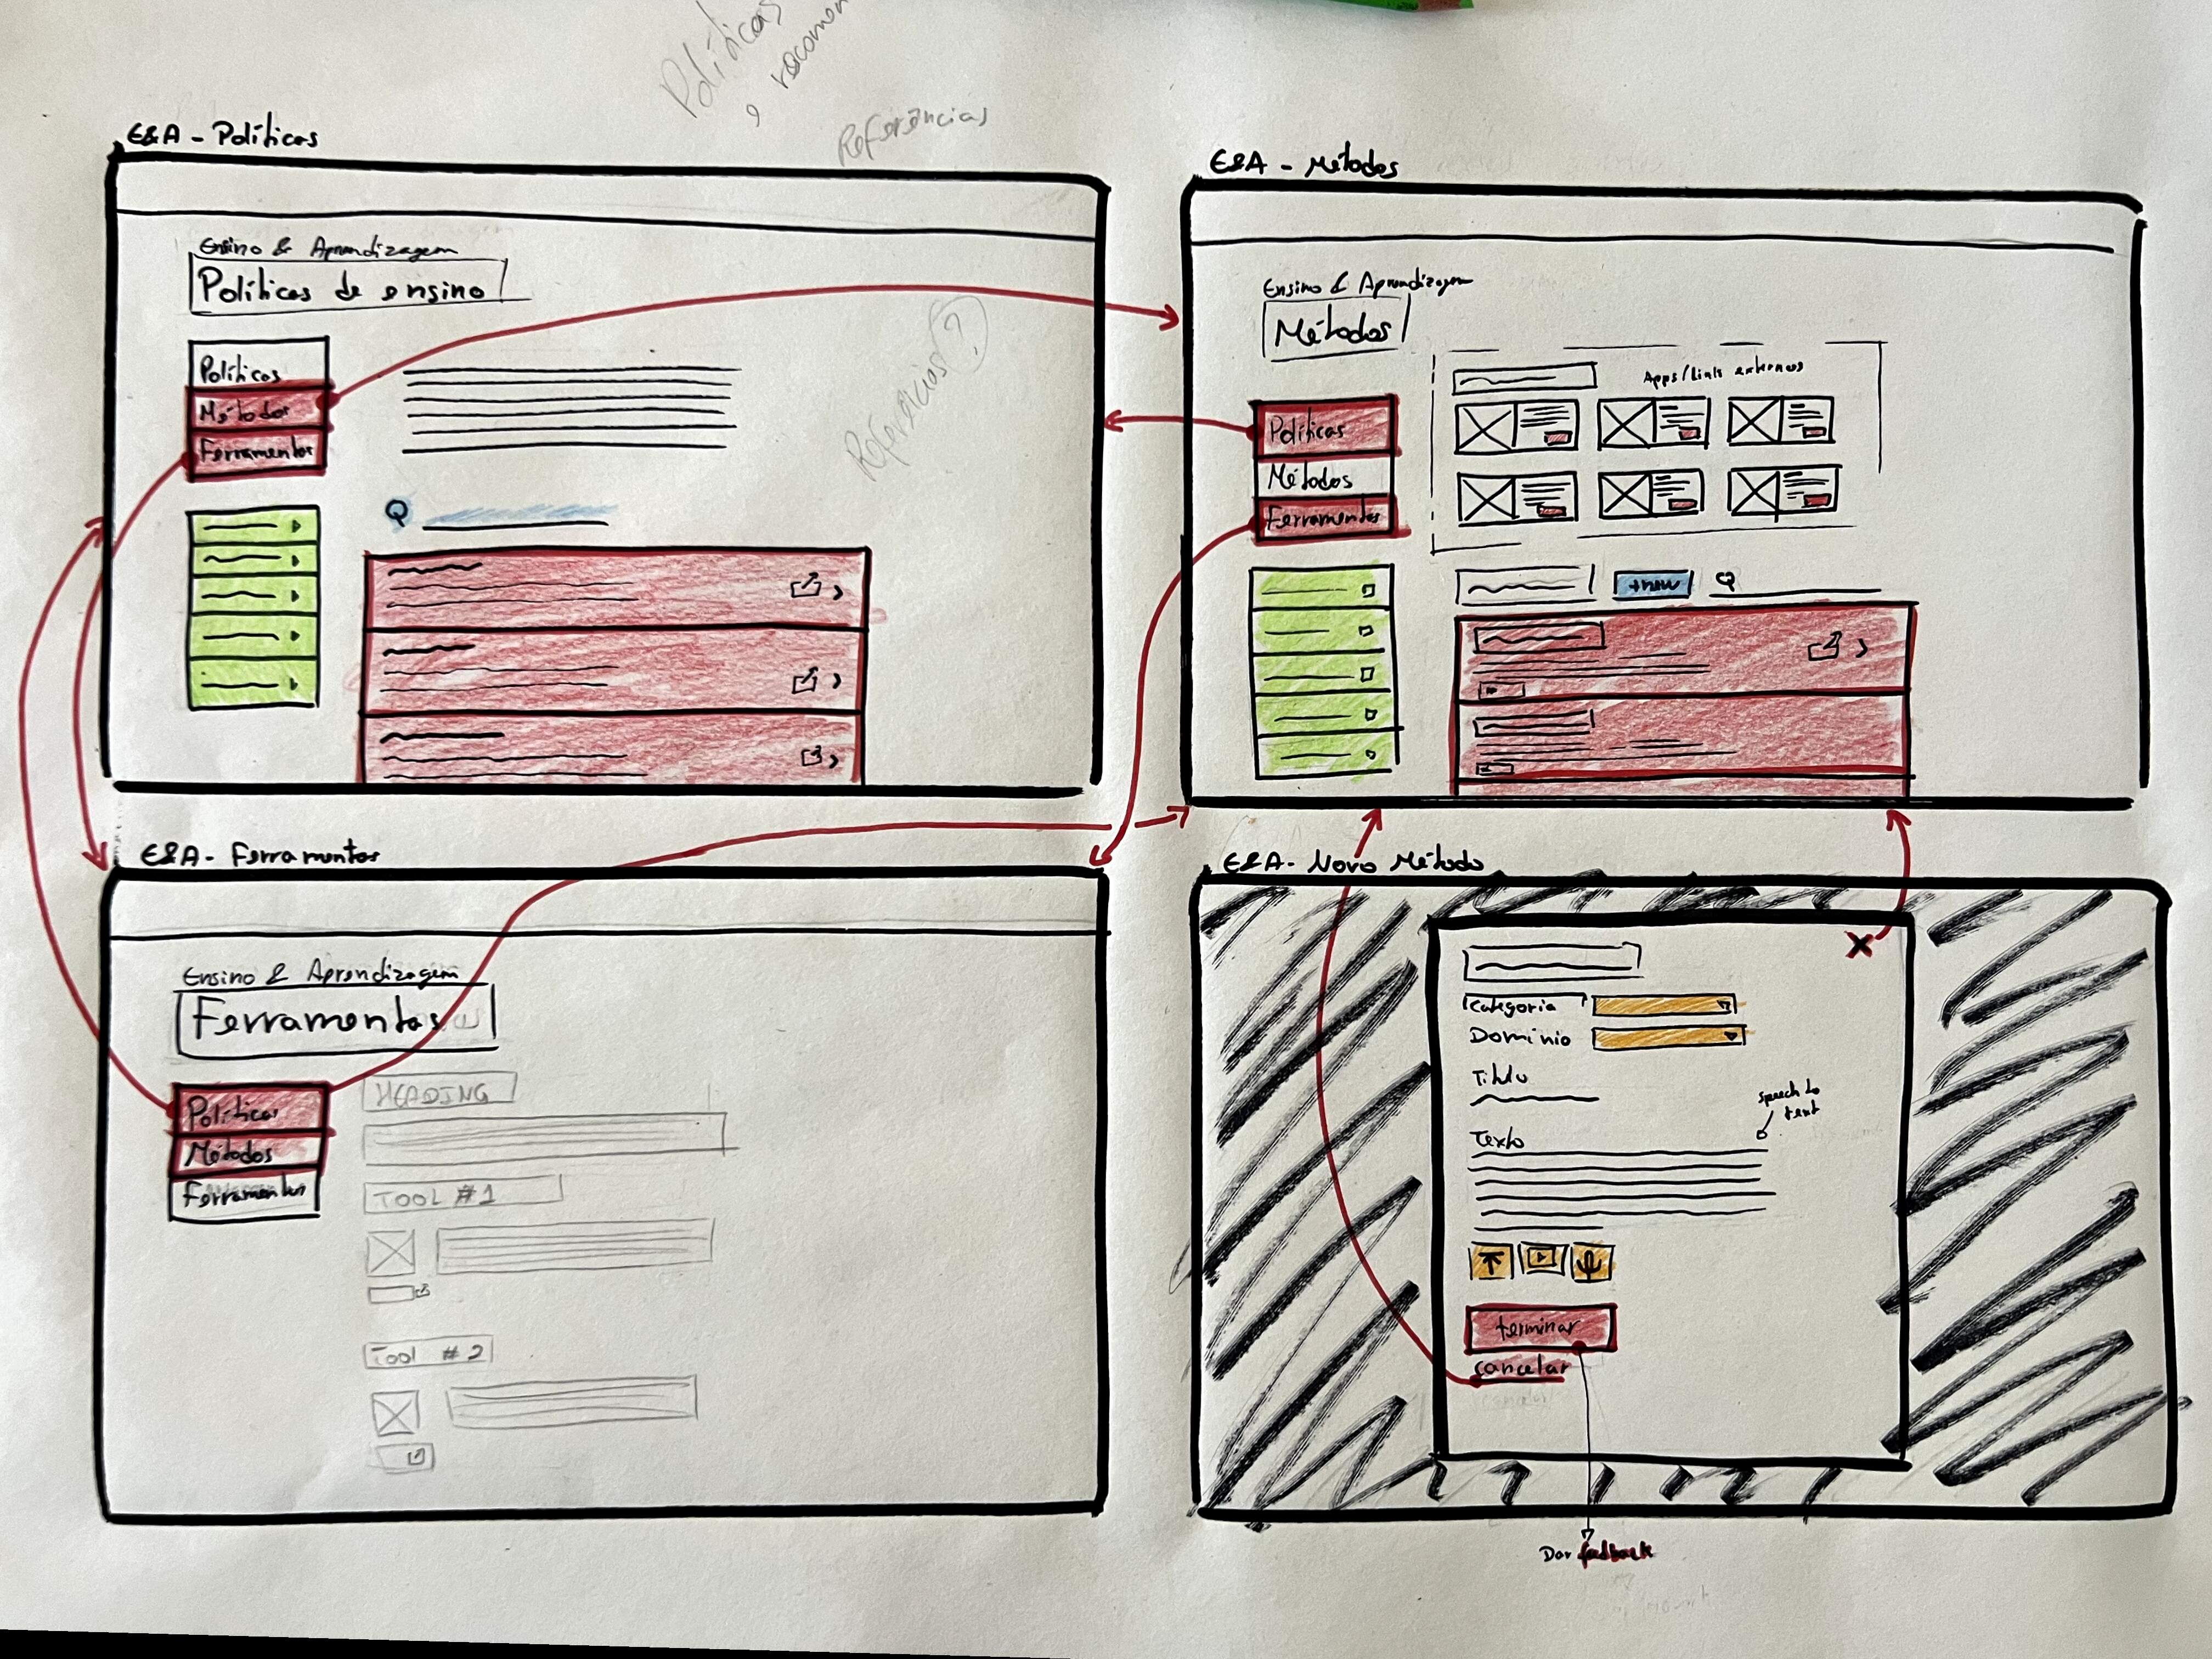 Políticas
e recomen
Referências
E&A - Políticas
Ensino & Aprendizagem
Políticas de ensino
Políticas
Métodos
Ferramentas
Referências?
E&A - Métodos
Ensino & Aprendizagem
Métodos
Políticas
Métodos
Ferramentas
Apps/links externos
+new
E&A - Ferramentas
Ensino & Aprendizagem
Ferramentas
Políticas
Métodos
Ferramentas
HEADING
TOOL #1
Tool #2
E&A - Novo Método
X
Categoria
Domínio
Título
speech to
text
Texto
terminar
cancelar
Dar feedback